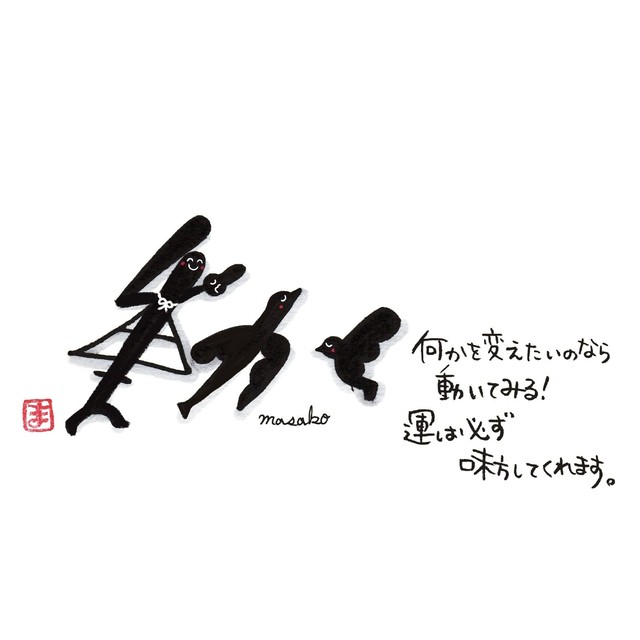 動く
何かを変えたいのなら
動いてみる!
運は必ず
味方してくれます。
masako
ま